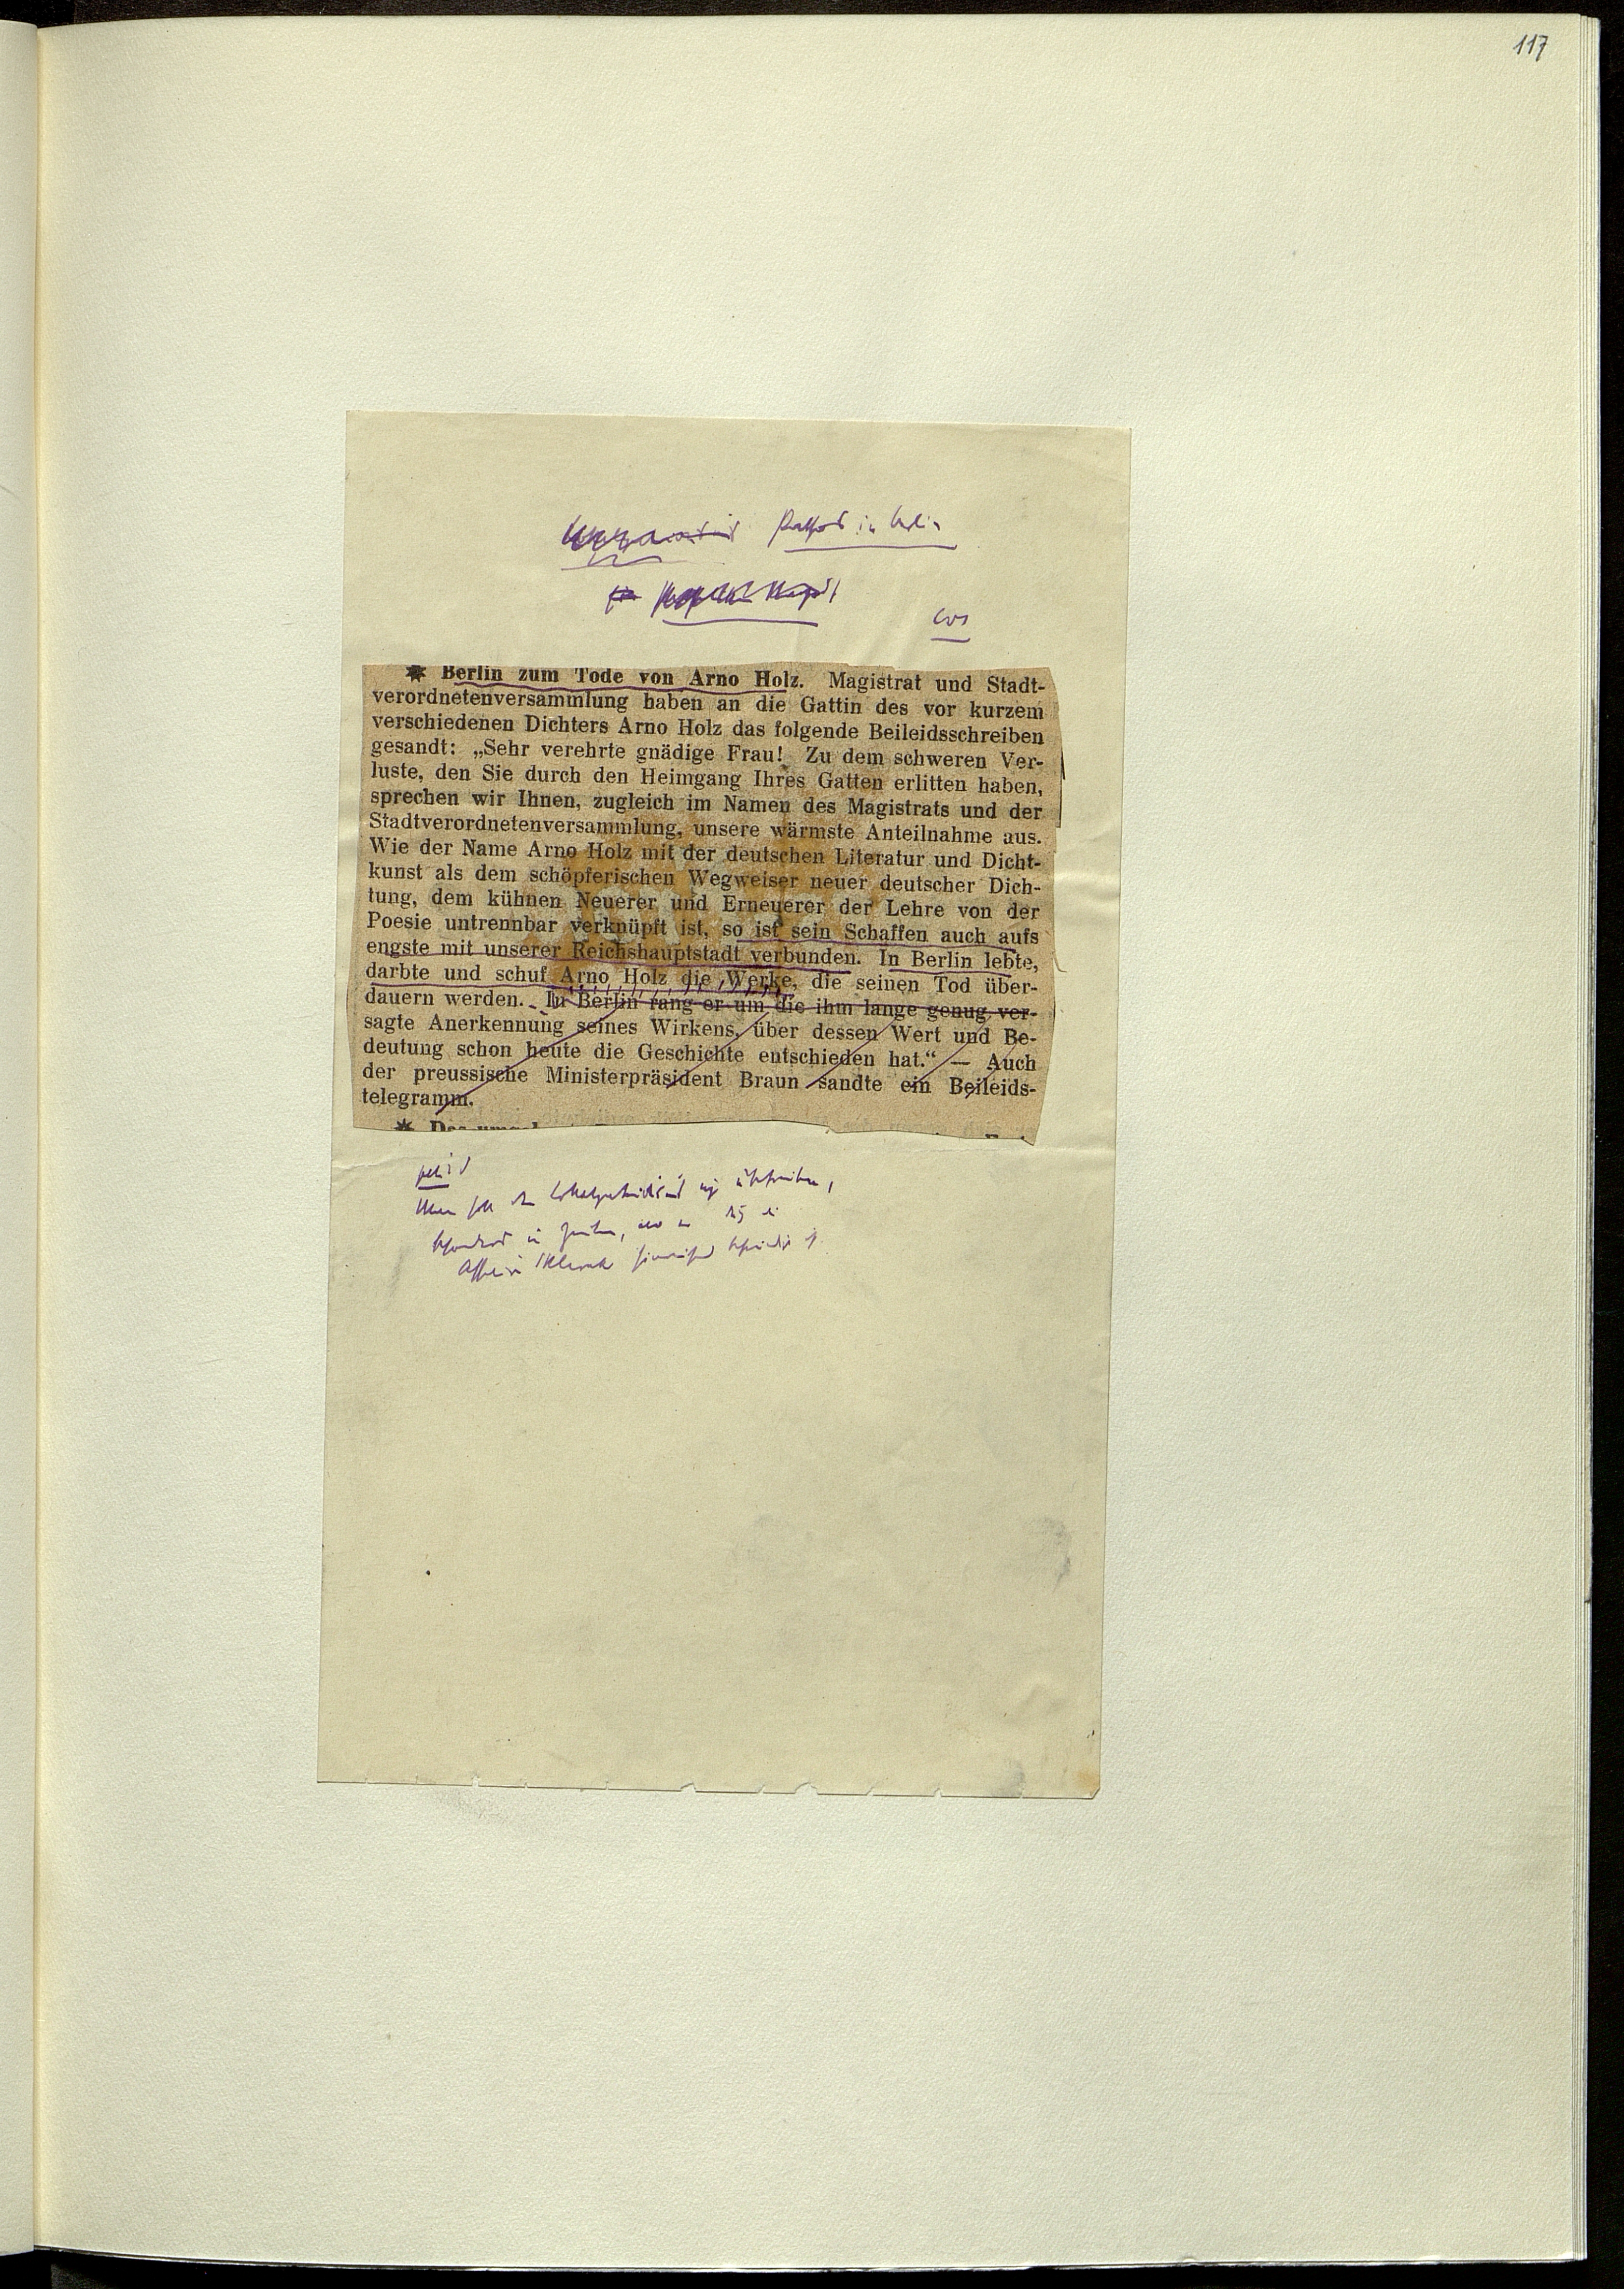 117
in Berlin
✷ Berlin zum Tode von Arno Holz. Magistrat und Stadt-
verordnetenversammlung haben an die Gattin des vor kurzem
verschiedenen Dichters Arno Holz das folgende Beileidsschreiben
gesandt: „Sehr verehrte gnädige Frau! Zu dem schweren Ver-
luste, den Sie durch den Heimgang Ihres Gatten erlitten haben,
sprechen wir Ihnen, zugleich im Namen des Magistrats und der
Stadtverordnetenversammlung, unsere wärmste Anteilnahme aus.
Wie der Name Arno Holz mit der deutschen Literatur und Dicht-
kunst als dem schöpferischen Wegweiser neuer deutscher Dich-
tung, dem kühnen Neuerer und Erneuerer der Lehre von der
Poesie untrennbar verknüpft ist, so ist sein Schaffen auch aufs
engste mit unserer Reichshauptstadt verbunden. In Berlin lebte,
darbte und schuf Arno Holz die Werke, die seinen Tod über-
dauern werden. In Berlin rang er um die ihm lange genug ver-
sagte Anerkennung seines Wirkens, über dessen Wert und Be-
deutung schon heute die Geschichte entschieden hat.“ — Auch
der preussische Ministerpräsident Braun sandte ein Beileids-
telegramm.
Man soll den Lokalpatriotismus nicht übertreiben,
besonders in Zeiten,